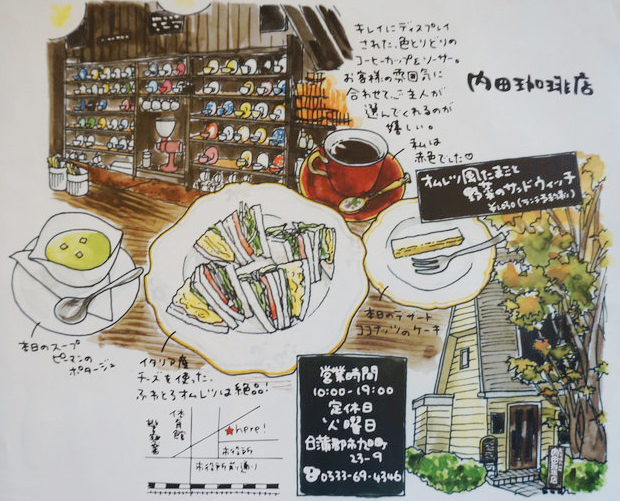 キレイにディスプレイ
された、色とりどりの
コーヒーカップ&ソーサー。
お客様の雰囲気に
合わせて、ご主人が
選んでくれるのが
嬉しい。
私は
赤色でした♡
内田珈琲店
オムレツ風たまごと
野菜のサンドウィッチ
本日のスープ
ピーマンの
ポタージュ
イタリア産
チーズを使った、
ふわとろオムレツは絶品!
本日のデザート
ココナッツのケーキ
体育館
警察署
★here!
市役所
市役所前通り
営業時間
10:00-19:00
定休日
火曜日
蒲郡市旭町
23-9
☎0533-69-4346
内田珈琲店